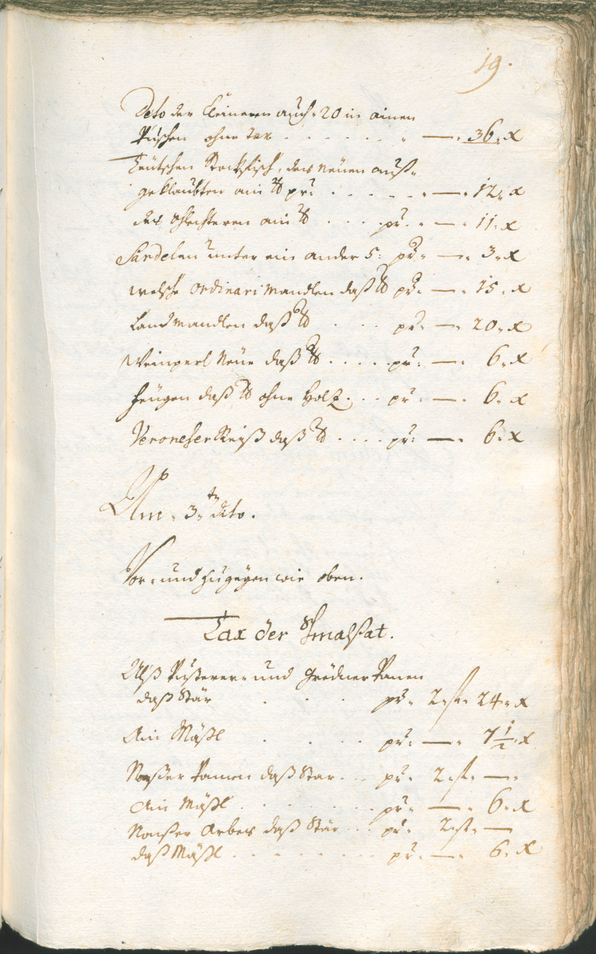 19.
Deto der kleinern auch 20 in ainen
Puschen ohne tax . . . . . — . 36. x
Teütschen Stockfisch, des neuen auß-
geklaubten ain ℔ pr: . . . . — . 12. x
des schlechteren ain ℔ . . . . pr: — . 11. x
Sardelen unter ein ander 5: pr: — . 3. x
welsche ordinari Mandlen daß ℔ pr: — . 15. x
Landmandlen daß ℔ . . . pr: — . 20. x
Weinperl Neüe daß ℔ . . . . pr: — . 6. x
Feügen daß ℔ ohne Holz . . . pr: — . 6. x
Veroneser Reiß daß ℔ . . . . pr: — . 6. x
Am . 3.ten dito.
Vor- und zugegen wie oben.
Tax der Smalsat.
Alß Pusterer- und Grödner Panen
daß Stär . . . pr: 2. f. 24. x
Ain Mäßl . . . pr: — . 7 1/2 . x
Panen daß Star . . pr: 2. f. —
Ain Mäßl . . . . pr: — . 6. x
Arbes daß Stär . . . pr: 2. f. —
daß Mäßl . . . . . pr: — . 6. x